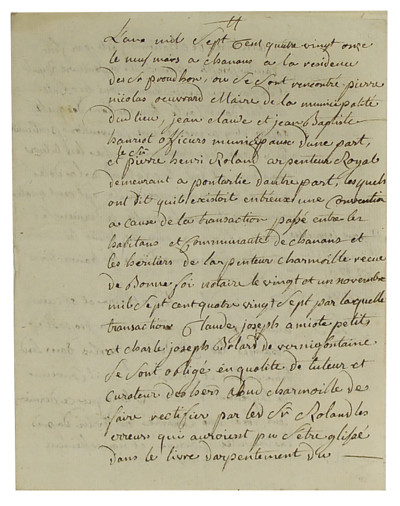 L'ans mil sept Cent quatre vingt onze
le neuf mars a chanans a la residence
du Sr proudhon, ou se sont rencontré pierre
nicolas oeuvrard Maire de la municipalité
dudit lieu, jean claude et jean Baptiste
hanriot officiers municipaux d'une part,
et le Sr pierre henri Roland arpenteur Royal
demeurant a pontarlie d'autre part, lesquels
ont dit qu'ils existoit entr'eux une Convention
a cause de la transaction passé entre les
habitans et Communauté de chanans et
les heritiers de larpenteur charmoille recue
de Bonne foi notaire le vingt et un novembre
mil sept cent quatre vingt sept par laquelle
transaction Claude joseph amiote petit
et charle joseph de vernigfontaine
se sont obligé en qualité de tuteur et
curateur des hers dud charmoille de
faire rectifier par led Sr Roland les
erreurs qui auroient pu s'etre glissé
dans le livre d'arpentement du